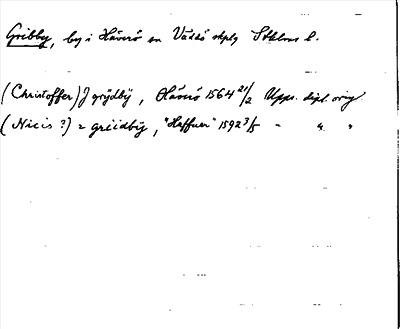 Gribby, by i Häverö sn Väddö skplg Sthlms l.
(Christoffer) J grijdbij, Häverö 1564 21/2 Upps. dipl. orig.
(Nicis ?) i griidbij, "Haffuer" 1592 3/5 - " "